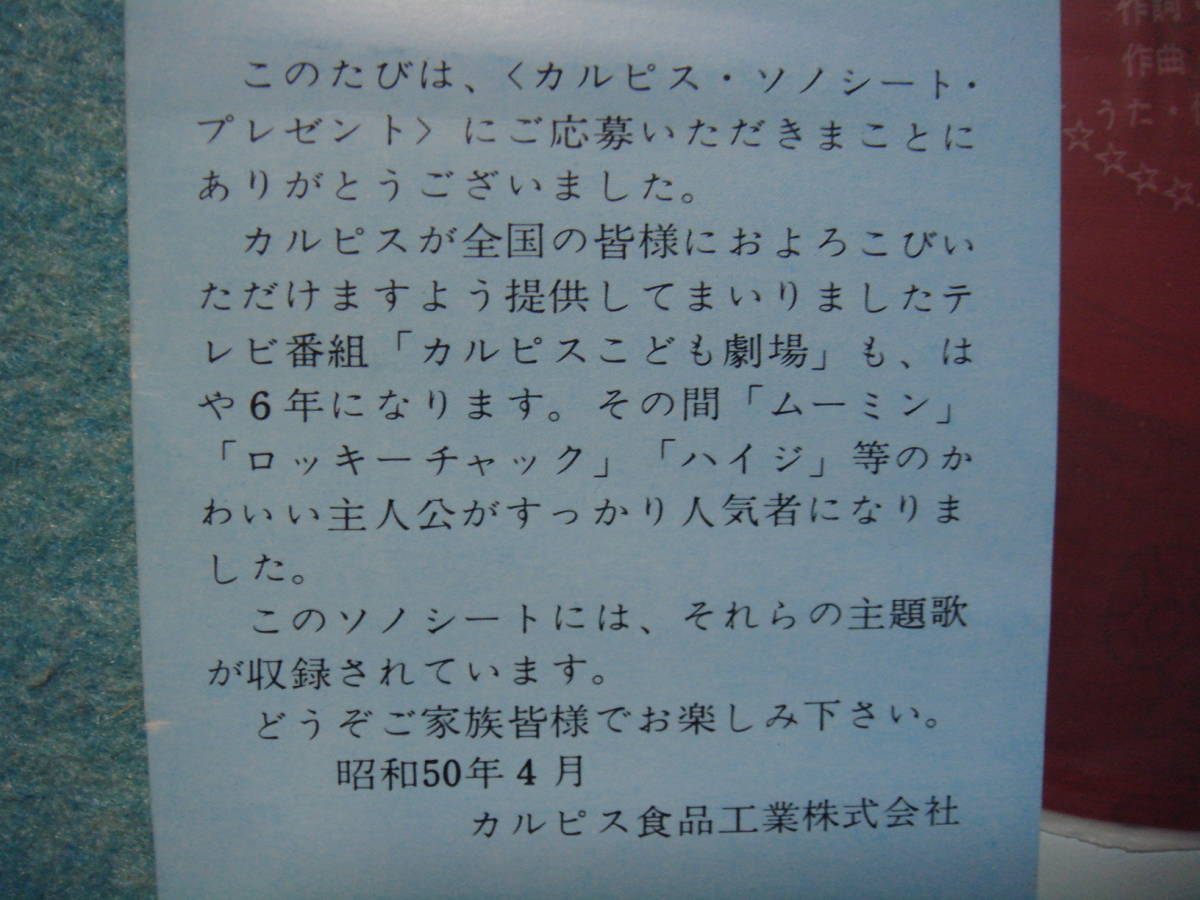 このたびは、〈カルピス・ソノシート・
プレゼント〉にご応募いただきまことに
ありがとうございました。
カルピスが全国の皆様におよろこびい
ただけますよう提供してまいりましたテ
レビ番組「カルピスこども劇場」も、は
や6年になります。その間「ムーミン」
「ロッキーチャック」「ハイジ」等のか
わいい主人公がすっかり人気者になりま
した。
このソノシートには、それらの主題歌
が収録されています。
どうぞご家族皆様でお楽しみ下さい。
昭和50年4月
カルピス食品工業株式会社
作詞
作曲
うた・
☆☆☆☆